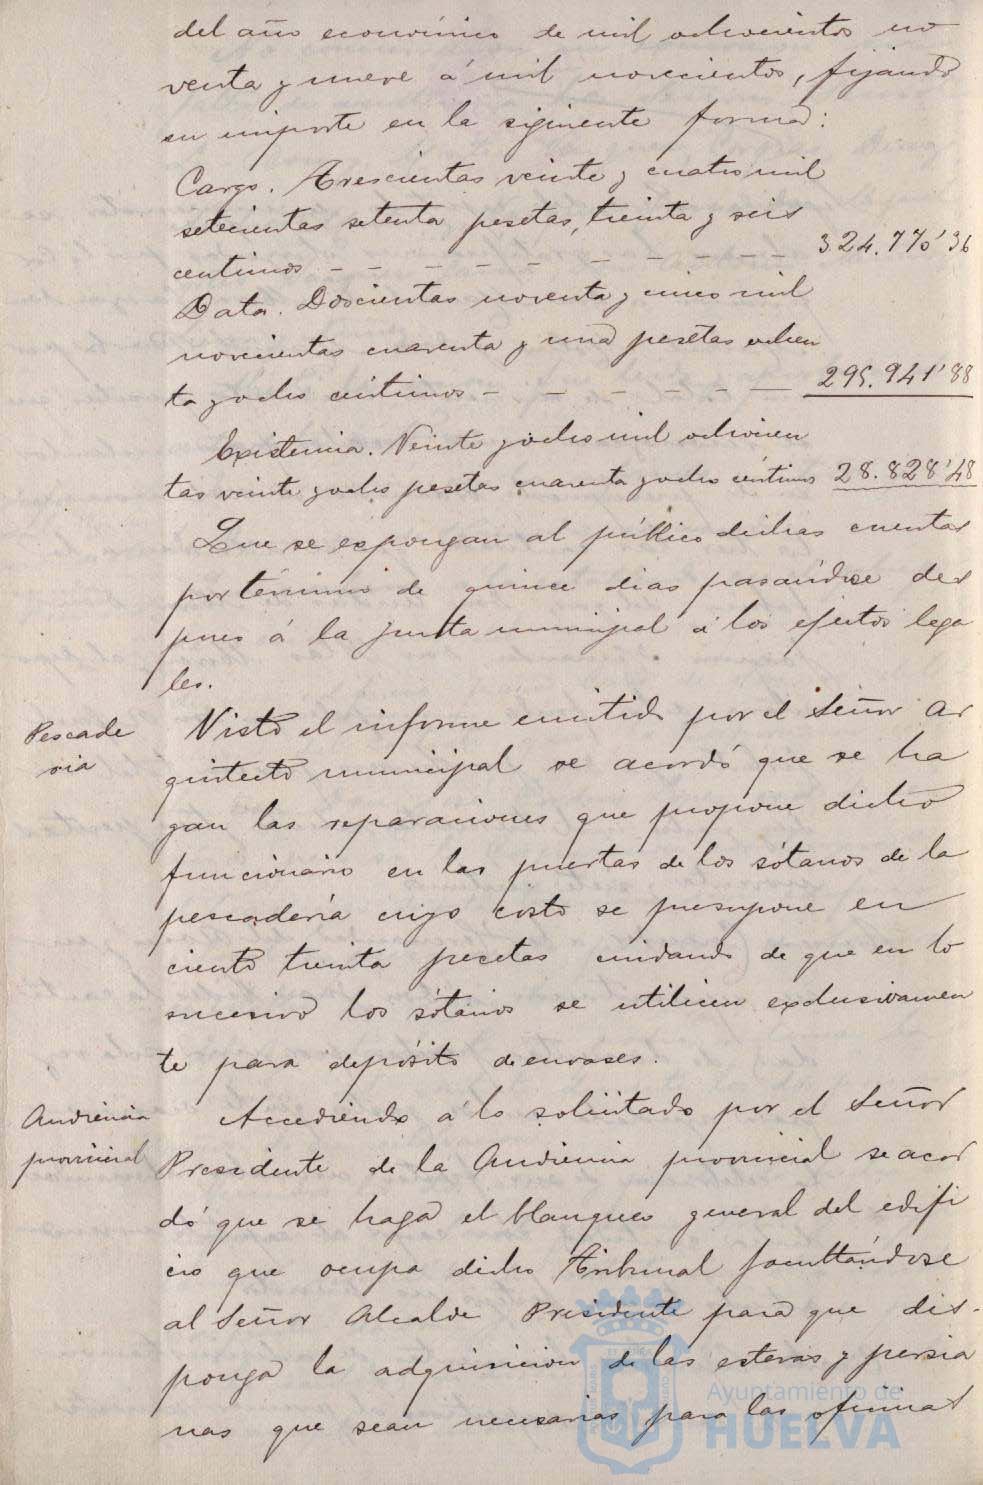 del año económico de mil ochocientos no
venta y nueve á mil novecientos, fijando
su importe en la siguiente forma:
Cargo. Trescientas veinte y cuatro mil
setecientas setenta pesetas, treinta y seis
centimos — — — — — — — — — 324.770'36
Data. Doscientas noventa y cinco mil
novecientas cuarenta y una pesetas ochen
ta y ocho céntimos — — — — — — 295.941'88
Existencia. Veinte y ocho mil ochocien
tas veinte y ocho pesetas cuarenta y ocho céntimos 28.828'48
Que se expongan al público dichas cuentas
por término de quince dias pasándose des
pues á la junta municipal á los efectos lega
les.
Pescade
ria
Visto el informe emitido por el Señor ar
quitecto municipal se acordó que se ha
gan las reparaciones que propone dicho
funcionario en las puertas de los sótanos de la
pescadería cuyo costo se presupone en
ciento treinta pesetas cuidando de que en lo
sucesivo los sótanos se utilicen exclusivamen
te para depósito de envases.
Audiencia
provincial
Accediendo á lo solicitado por el Señor
Presidente de la Audiencia provincial se acor
dó que se haga el blanqueo general del edifi
cio que ocupa dicho Tribunal facultándose
al Señor Alcalde Presidente para que dis-
ponga la adquisicion de las esteras y persia
nas que sean necesarias para las oficinas
Ayuntamiento de
HUELVA